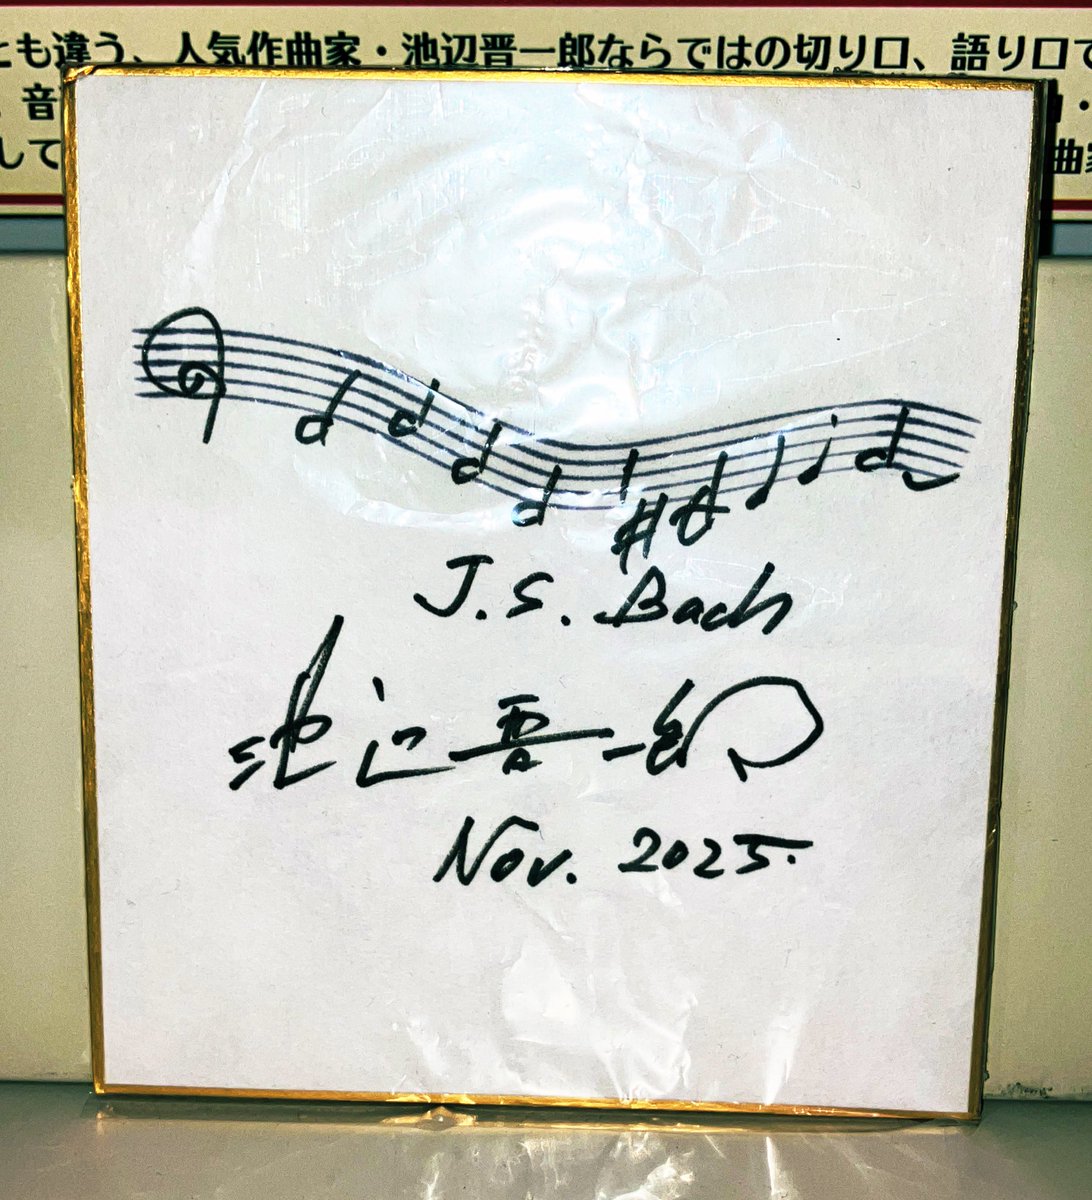 とも違う、人気作曲家・池辺晋一郎ならではの切り口、語り口で
音
して
曲家
J.S. Bach
池辺晋一郎
Nov. 2025.